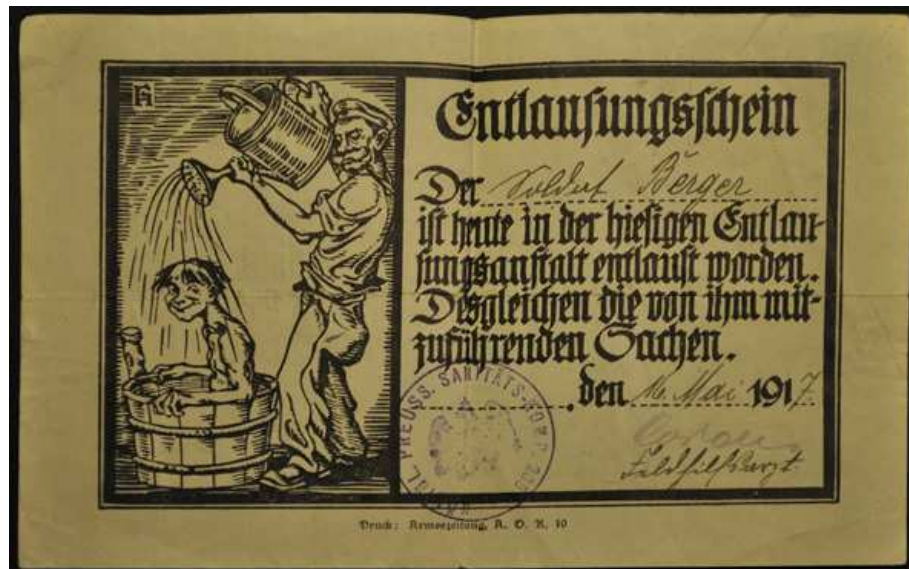 Entlausungsschein
Der Soldat Berger
ist heute in der hiesigen Entlau-
sungsanstalt entlaust worden.
Desgleichen die von ihm mit-
zuführenden Sachen.
, den 16. Mai 1917.
Feldhilfsarzt.
KÖNIGL. PREUSS. SANITÄTS-KOMP.
Druck: Armeezeitung, A. O. K. 10